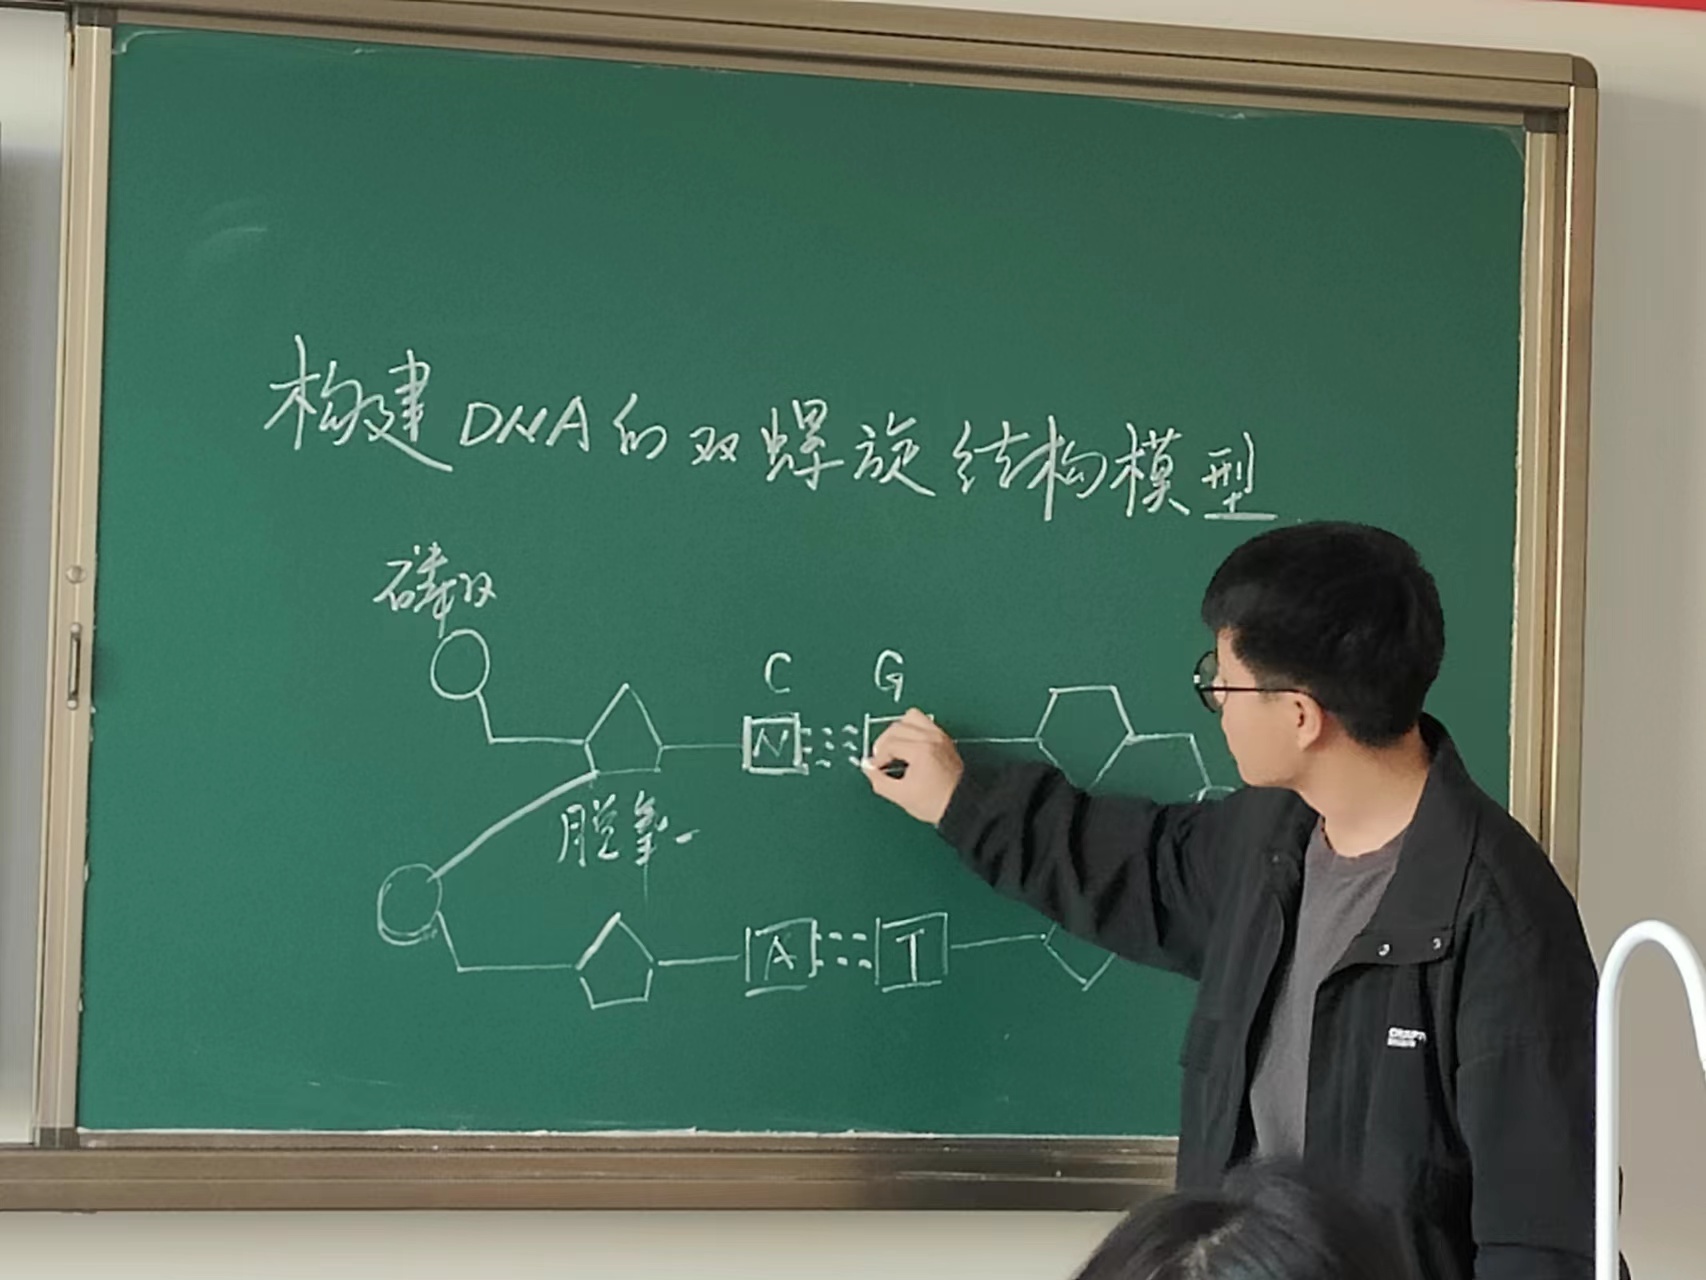 构建DNA的双螺旋结构模型
磷酸
C G
N
脱氧
A T